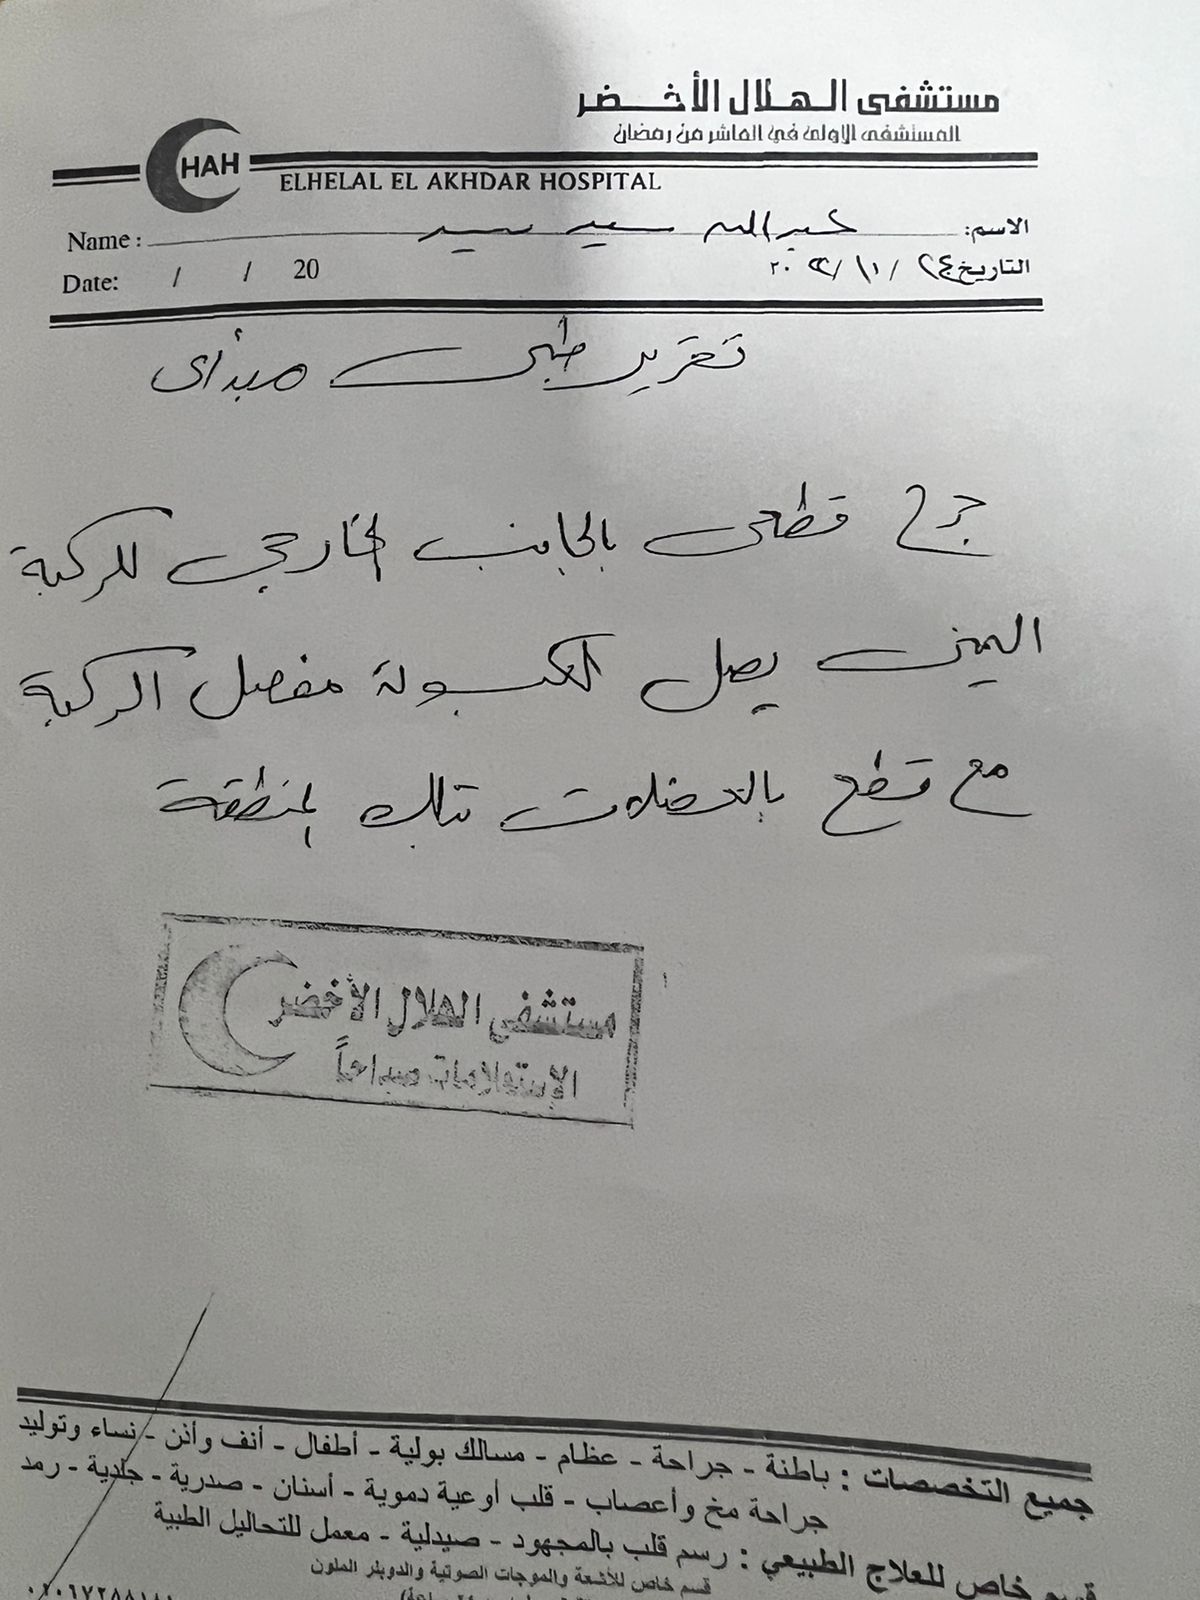 مستشفى الهلال الأخضر
المستشفى الاولى في العاشر من رمضان
HAH
ELHELAL EL AKHDAR HOSPITAL
Name : الاسم: عبدالله سعيد سيد
Date: / / 20 التاريخ ٢٤ / ١٠ / ٢٠٢٢
تقرير طبى مبدأى
جرح قطعى بالجانب الخارجى للركبة
اليمنى يصل لكبسولة مفصل الركبة
مع قطع بالعضلات بتلك المنطقة
مستشفى الهلال الأخضر
الإستعلامات صباحاً
جميع التخصصات : باطنة - جراحة - عظام - مسالك بولية - أطفال - أنف وأذن - نساء وتوليد
جراحة مخ وأعصاب - قلب أوعية دموية - أسنان - صدرية - جلدية - رمد
قسم خاص للعلاج الطبيعي : رسم قلب بالمجهود - صيدلية - معمل للتحاليل الطبية
قسم خاص للأشعة والموجات الصوتية والدوبلر الملون